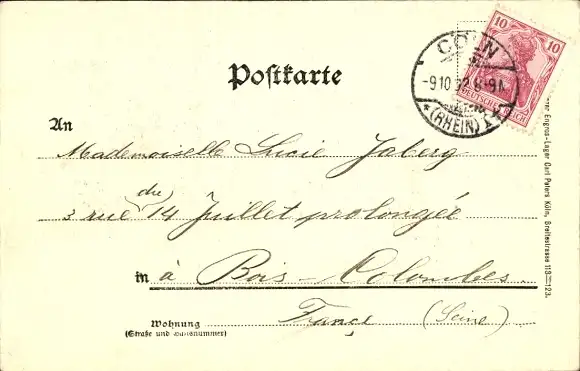 10 10
CÖLN
-9.10.02.8-9
*(RHEIN)
DEUTSCHES REICH
Postkarte
An
Mademoiselle Lucie Jaberg
du
3 rue 14 Juillet prolongée
in à Bois-Colombes
France (Seine)
Wohnung
(Straße und Hausnummer)
Engros-Lager Carl Peters Köln, Breitestrasse 113-123.